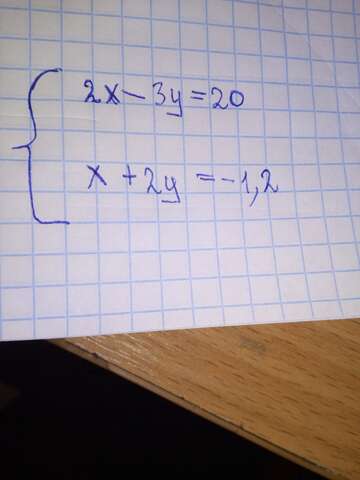 2x - 3y = 20
x + 2y = -1,2